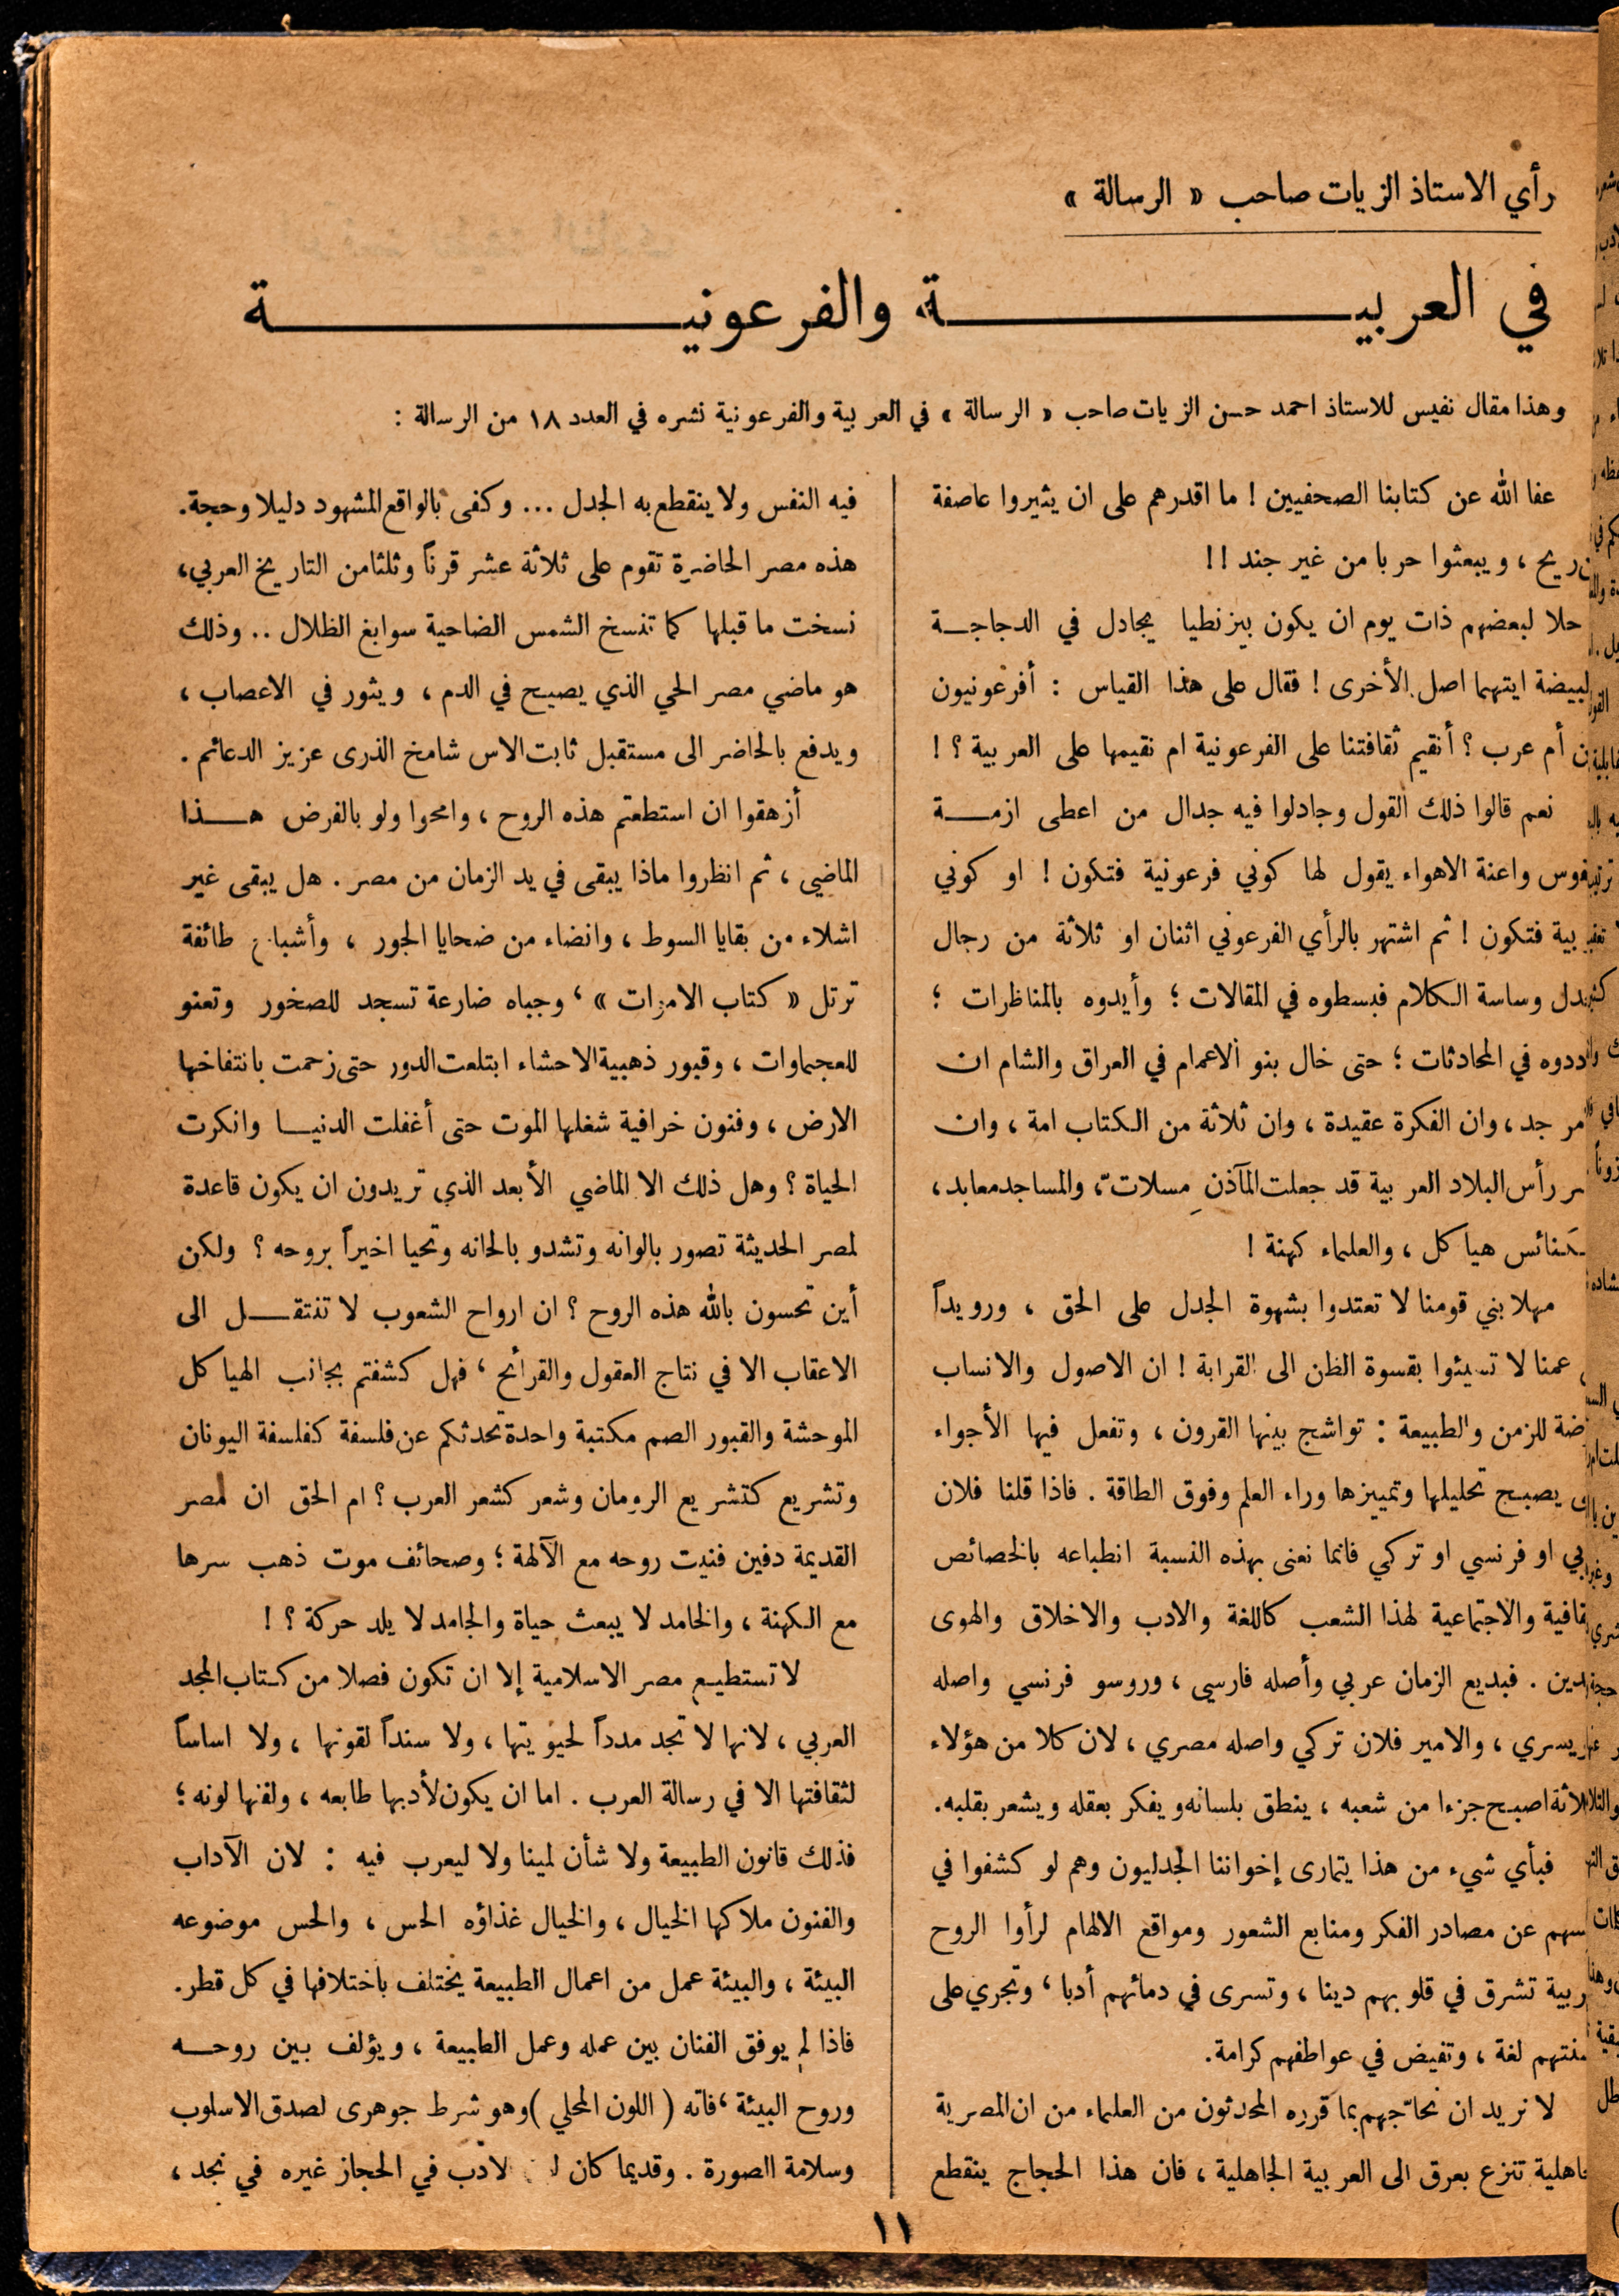 رأي الاستاذ الزيات صاحب « الرسالة »
في العربية والفرعونية
وهذا مقال نفيس للاستاذ احمد حسن الزيات صاحب « الرسالة » في العربية والفرعونية نشره في العدد ١٨ من الرسالة :
عفا الله عن كتابنا الصحفيين ! ما اقدرهم على ان يثيروا عاصفة
ريح ، ويبعثوا حربا من غير جند !!
حلا لبعضهم ذات يوم ان يكون بيزنطيا يجادل في الدجاجة
لبيضة ايتهما اصل الأخرى ! فقال على هذا القياس : أفرعونيون
أم عرب ؟ أنقيم ثقافتنا على الفرعونية ام نقيمها على العربية ؟ !
نعم قالوا ذلك القول وجادلوا فيه جدال من اعطى ازمة
فوس واعنة الاهواء يقول لها كوني فرعونية فتكون ! او كوني
بية فتكون ! ثم اشتهر بالرأي الفرعوني اثنان او ثلاثة من رجال
دل وساسة الكلام فبسطوه في المقالات ؛ وأيدوه بالمناظرات ؛
ددوه في المحادثات ؛ حتى خال بنو الاعمام في العراق والشام ان
مر جد ، وان الفكرة عقيدة ، وان ثلاثة من الكتاب امة ، وان
ر رأس البلاد العربية قد جعلت المآذن مسلات ، والمساجد معابد ،
كنائس هياكل ، والعلماء كهنة !
مهلا بني قومنا لا تعتدوا بشهوة الجدل على الحق ، ورويداً
عمنا لا تسيئوا بقسوة الظن الى القرابة ! ان الاصول والانساب
ضة للزمن والطبيعة : تواشج بينها القرون ، وتفعل فيها الأجواء
يصبح تحليلها وتمييزها وراء العلم وفوق الطاقة . فاذا قلنا فلان
بي او فرنسي او تركي فانما نعنى بهذه النسبة انطباعه بالخصائص
قافية والاجتماعية لهذا الشعب كاللغة والادب والاخلاق والهوى
دين . فبديع الزمان عربي وأصله فارسي ، وروسو فرنسي واصله
يسري ، والامير فلان تركي واصله مصري ، لان كلا من هؤلاء
لاثة اصبح جزءا من شعبه ، ينطق بلسانه ويفكر بعقله ويشعر بقلبه .
فبأي شيء من هذا يتمارى إخواننا الجدليون وهم لو كشفوا في
سهم عن مصادر الفكر ومنابع الشعور ومواقع الالهام لرأوا الروح
ربية تشرق في قلوبهم دينا ، وتسرى في دمائهم أدبا ، وتجري على
سنتهم لغة ، وتفيض في عواطفهم كرامة .
لا نريد ان نحاجّهم بما قرره المحدثون من العلماء من ان المصرية
اهلية تنزع بعرق الى العربية الجاهلية ، فان هذا الحجاج ينقطع
فيه النفس ولا ينقطع به الجدل ... وكفى بالواقع المشهود دليلا وحجة .
هذه مصر الحاضرة تقوم على ثلاثة عشر قرناً وثلثا من التاريخ العربي ،
نسخت ما قبلها كما تنسخ الشمس الضاحية سوابغ الظلال .. وذلك
هو ماضي مصر الحي الذي يصيح في الدم ، ويثور في الاعصاب ،
ويدفع بالحاضر الى مستقبل ثابت الاس شامخ الذرى عزيز الدعائم .
أزهقوا ان استطعتم هذه الروح ، وامحوا ولو بالفرض هذا
الماضي ، ثم انظروا ماذا يبقى في يد الزمان من مصر . هل يبقى غير
اشلاء من بقايا السوط ، وانضاء من ضحايا الجور ، وأشباح طائفة
ترتل « كتاب الاموات » ، وجباه ضارعة تسجد للصخور وتعنو
للعجماوات ، وقبور ذهبية الاحشاء ابتلعت الدور حتى زحمت بانتفاخها
الارض ، وفنون خرافية شغلها الموت حتى أغفلت الدنيا وانكرت
الحياة ؟ وهل ذلك الا الماضي الأبعد الذي تريدون ان يكون قاعدة
لمصر الحديثة تصور بالوانه وتشدو بالحانه وتحيا اخيراً بروحه ؟ ولكن
أين تحسون بالله هذه الروح ؟ ان ارواح الشعوب لا تنتقل الى
الاعقاب الا في نتاج العقول والقرائح ، فهل كشفتم بجانب الهياكل
الموحشة والقبور الصم مكتبة واحدة تحدثكم عن فلسفة كفلسفة اليونان
وتشريع كتشريع الرومان وشعر كشعر العرب ؟ ام الحق ان لمصر
القديمة دفين فنيت روحه مع الآلهة ؛ وصحائف موت ذهب سرها
مع الكهنة ، والخامد لا يبعث حياة والجامد لا يلد حركة ؟ !
لا تستطيع مصر الاسلامية إلا ان تكون فصلا من كتاب المجد
العربي ، لانها لا تجد مدداً لحيويتها ، ولا سنداً لقوتها ، ولا اساساً
لثقافتها الا في رسالة العرب . اما ان يكون لأدبها طابعه ، ولفنها لونه ؛
فذلك قانون الطبيعة ولا شأن لمينا ولا ليعرب فيه : لان الآداب
والفنون ملاكها الخيال ، والخيال غذاؤه الحس ، والحس موضوعه
البيئة ، والبيئة عمل من اعمال الطبيعة يختلف باختلافها في كل قطر .
فاذا لم يوفق الفنان بين عمله وعمل الطبيعة ، ويؤلف بين روحه
وروح البيئة ، فاته ( اللون المحلي ) وهو شرط جوهرى لصدق الاسلوب
وسلامة الصورة . وقديما كان لادب في الحجاز غيره في نجد ،
١١